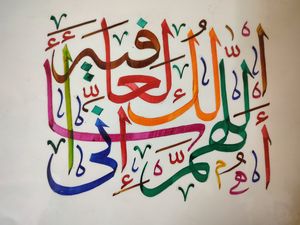 اللهم إنى
أسألك العافية